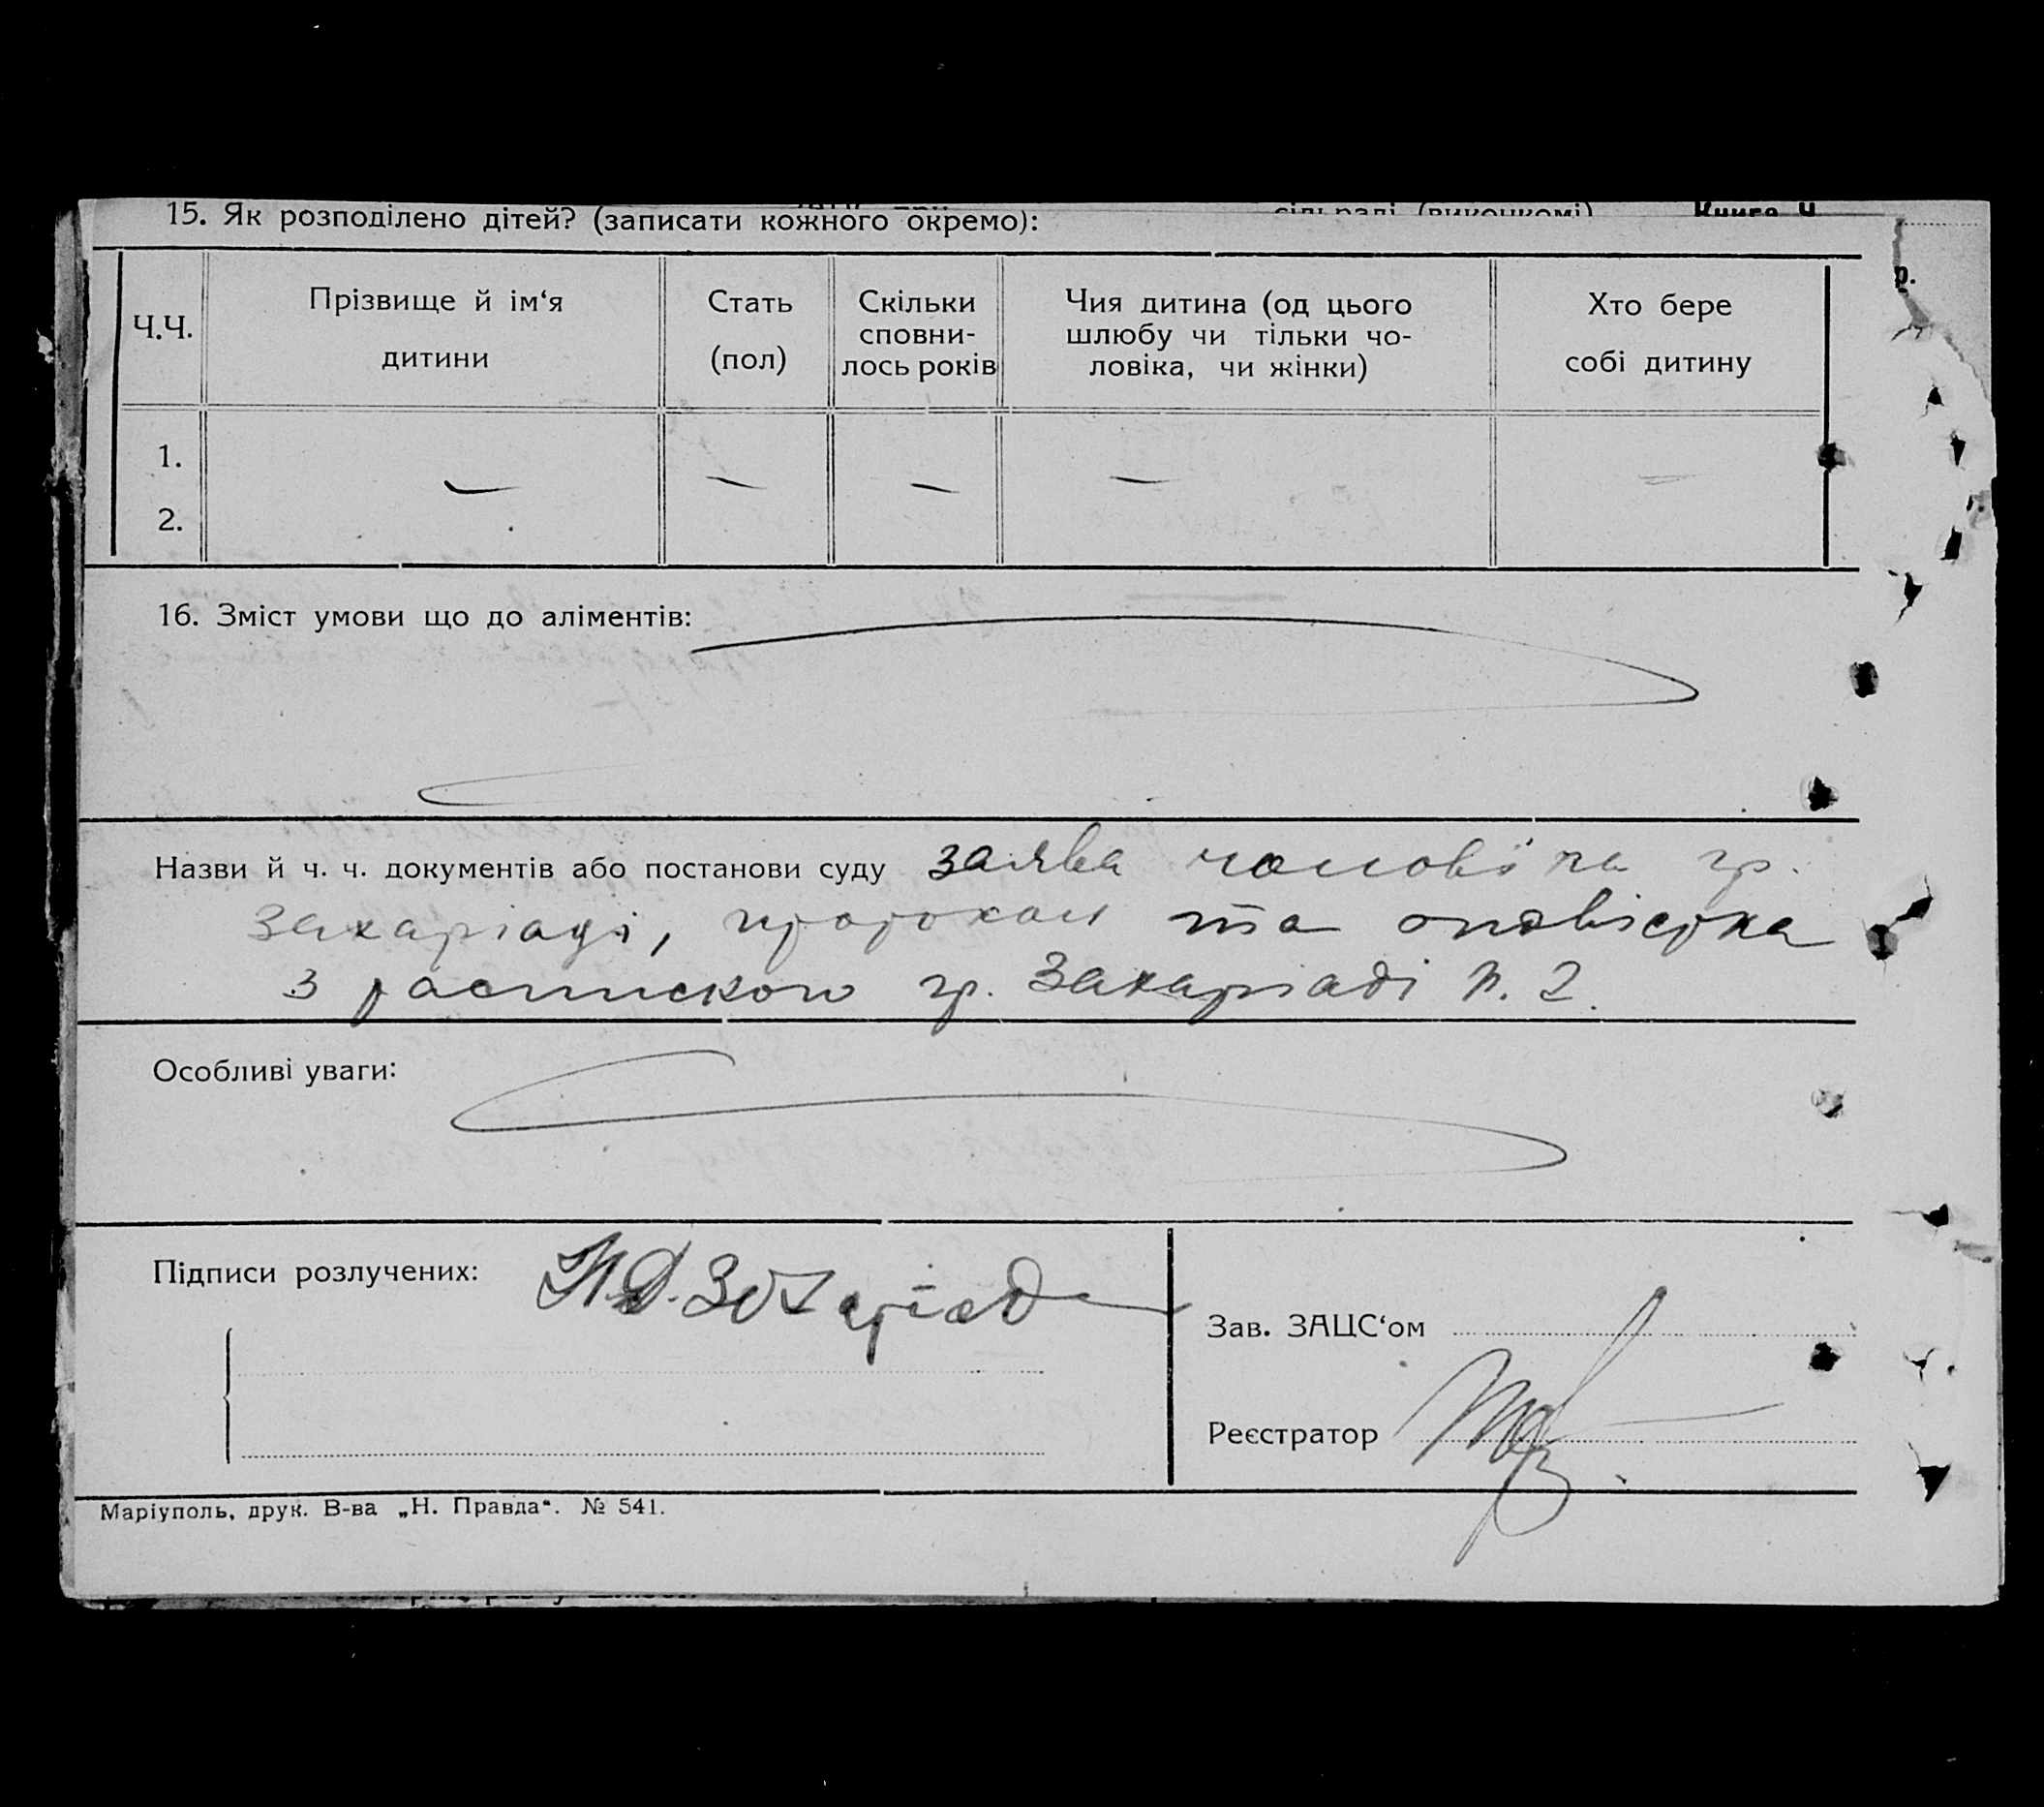 15. Як розподілено дітей? (записати кожного окремо):
Ч.Ч.
Прізвище й ім‘я
дитини
Стать
(пол)
Скільки
сповни-
лось років
Чия дитина (од цього
шлюбу чи тільки чо-
ловіка, чи жінки)
Хто бере
собі дитину
1.
— — — — —
2.
16. Зміст умови що до аліментів:
Назви й ч. ч. документів або постанови суду заява чоловіка гр.
Захаріаді, протокол та оповістка
з распискою гр. Захаріаді
Особливі уваги:
Підписи розлучених:
Зав. ЗАЦС‘ом
Реєстратор
Маріуполь, друк. В-ва „Н. Правда“. № 541.